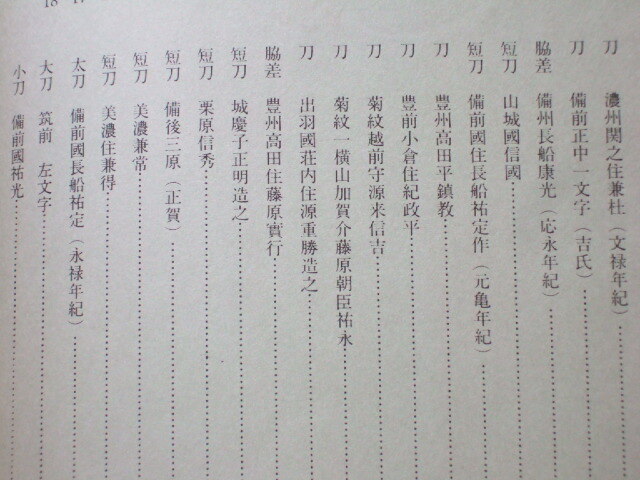 刀 濃州関之住兼杜(文禄年紀)
刀 備前正中一文字(吉氏)
脇差 備州長船康光(応永年紀)
短刀 山城國信國
短刀 備前國住長船祐定作(元亀年紀)
刀 豊州高田平鎮教
刀 豊前小倉住紀政平
刀 菊紋越前守源来信吉
刀 菊紋一横山加賀介藤原朝臣祐永
刀 出羽國荘内住源重勝造之
脇差 豊州高田住藤原實行
短刀 城慶子正明造之
短刀 栗原信秀
短刀 備後三原(正賀)
短刀 美濃兼常
短刀 美濃住兼得
太刀 備前國長船祐定(永禄年紀)
大刀 筑前 左文字
小刀 備前國祐光